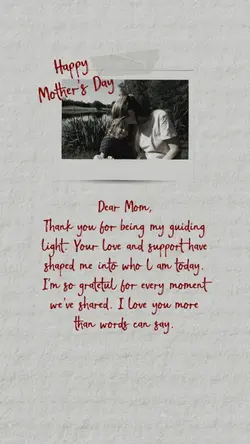 Happy
Mother's Day
Dear Mom,
Thank you for being my guiding
light. Your love and support have
shaped me into who I am today.
I'm so grateful for every moment
we've shared. I love you more
than words can say.